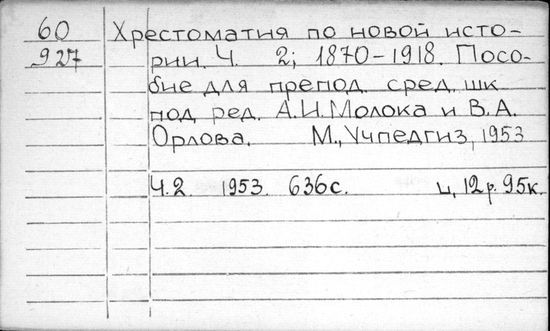 60 Хрестоматия по новой исто-
927 рии. Ч. 2; 1870-1918. Посо-
бие для препод. сред. шк.
под ред. А.И. Молока и В.А.
Орлова. М., Учпедгиз, 1953
Ч.2. 1953. 636с. ц. 12р. 95к.